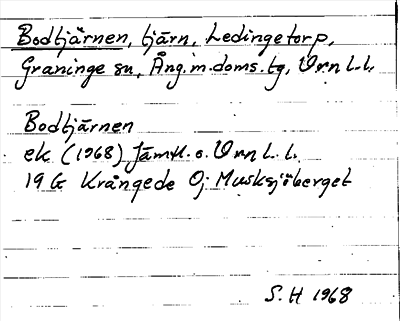 Bodtjärnen, tjärn, Ledingetorp,
Graninge sn, Ång.m.doms.tg, Vrn l.l.
Bodtjärnen
ek (1968) Jämtl. o. Vrn l. l.
19 G Krångede Öj Musksjöberget
S. H 1968